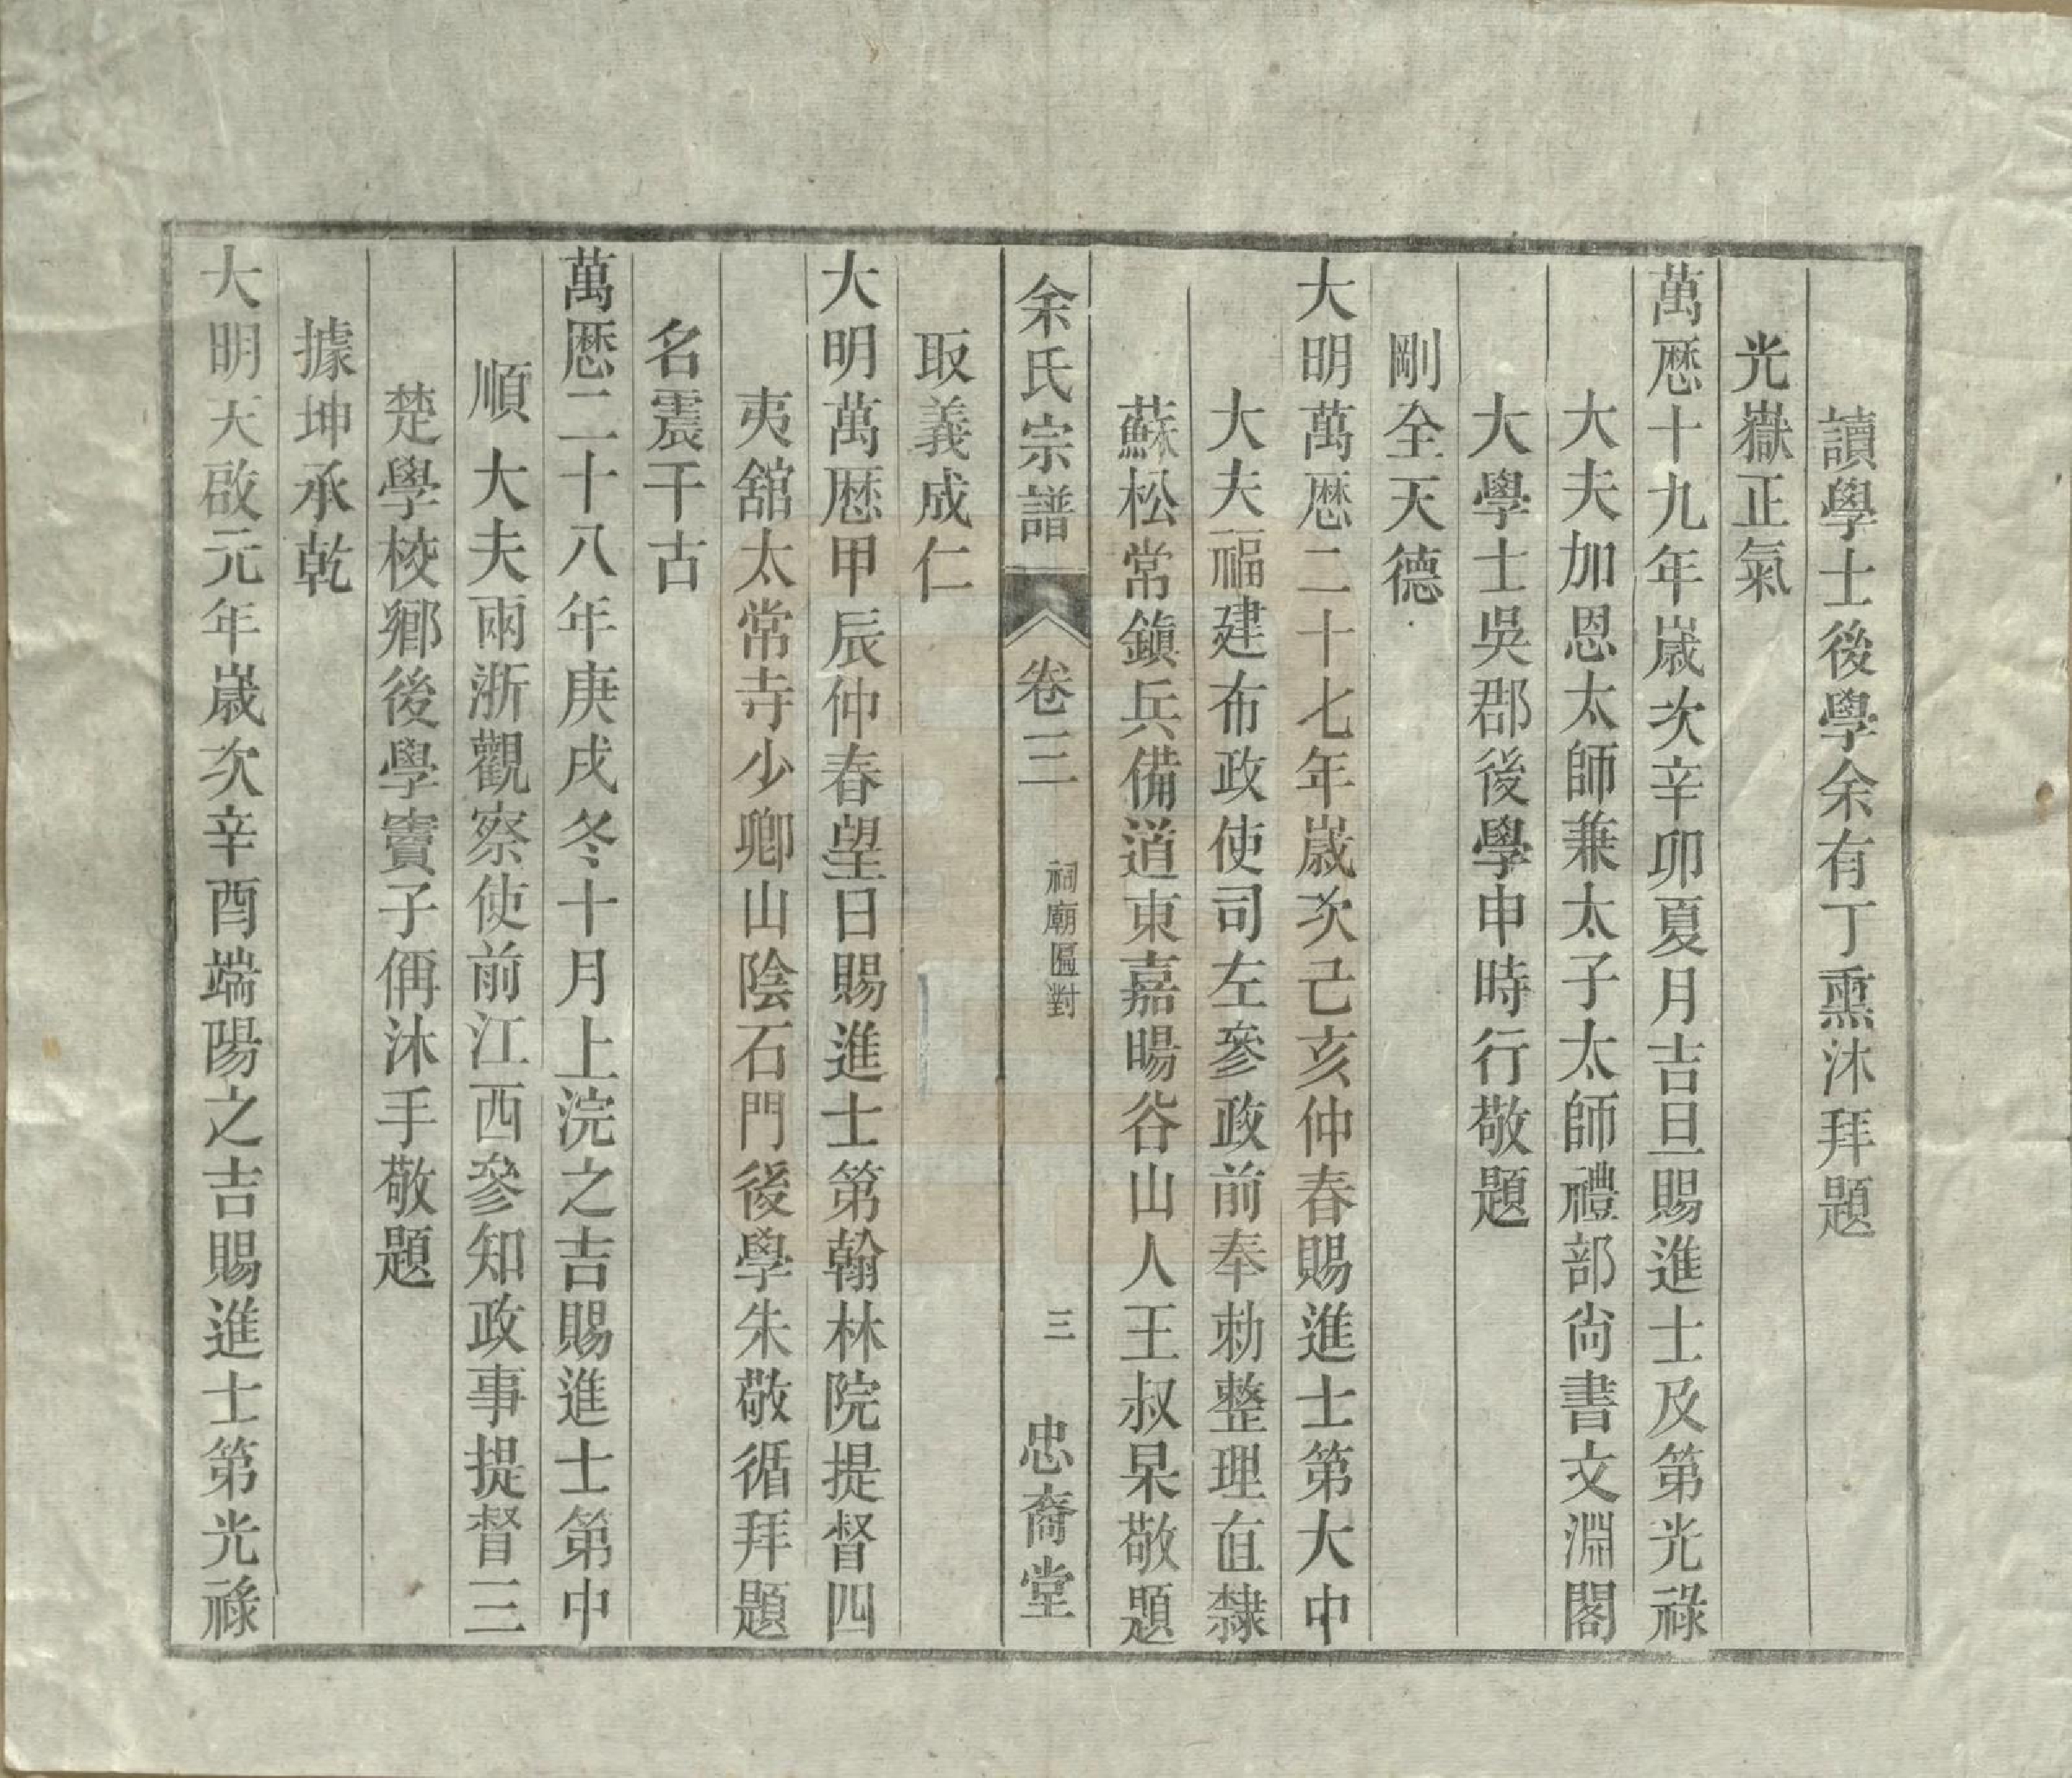 讀學士後學余有丁熏沐拜題
光嶽正氣
萬厯十九年歲次辛卯夏月吉旦賜進士及第光祿
大夫加恩太師兼太子太師禮部尚書文淵閣
大學士吳郡後學申時行敬題
剛全天德
大明萬厯二十七年歲次己亥仲春賜進士第大中
大夫福建布政使司左參政前奉勅整理直隸
蘇松常鎮兵備道東嘉暘谷山人王叔杲敬題
余氏宗譜
卷三
祠廟匾對
三
忠裔堂
取義成仁
大明萬厯甲辰仲春望日賜進士第翰林院提督四
夷舘太常寺少卿山陰石門後學朱敬循拜題
名震千古
萬厯二十八年庚戌冬十月上浣之吉賜進士第中
順大夫兩浙觀察使前江西參知政事提督三
楚學校鄉後學竇子偁沐手敬題
據坤承乾
大明天啟元年歲次辛酉端陽之吉賜進士第光祿